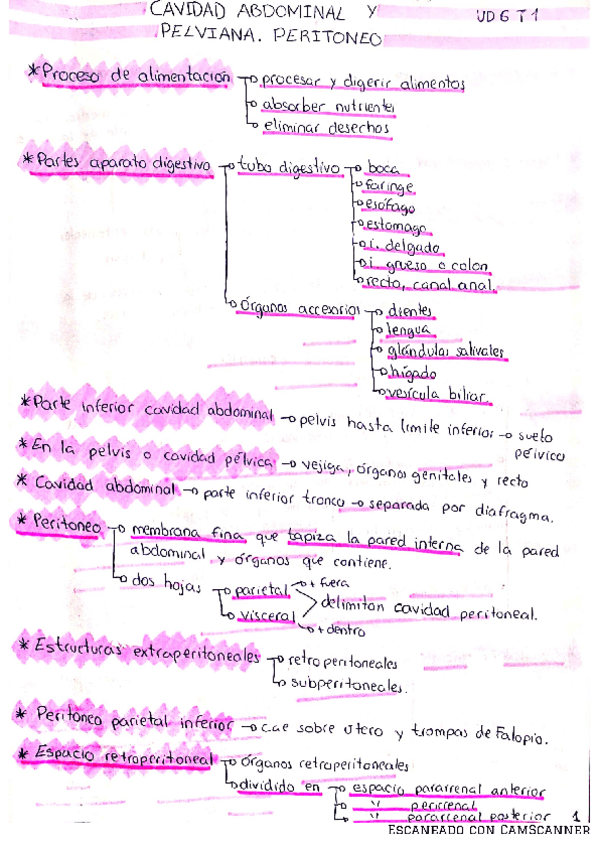 CAVIDAD ABDOMINAL Y UD6 T1
PELVIANA. PERITONEO
* Proceso de alimentación → procesar y digerir alimentos
→ absorber nutrientes
→ eliminar desechos
* Partes aparato digestivo → tubo digestivo → boca
→ faringe
→ esófago
→ estomago
→ i. delgado
→ i. grueso o colon
→ recto, canal anal.
→ órganos accesorios → dientes
→ lengua
→ glándulas salivales
→ hígado
→ vesícula biliar.
* Parte inferior cavidad abdominal → pelvis hasta límite inferior → suelo
pélvico
* En la pelvis o cavidad pélvica → vejiga, órganos genitales y recto
* Cavidad abdominal → parte inferior tronco → separada por diafragma.
* Peritoneo → membrana fina que tapiza la pared interna de la pared
abdominal y órganos que contiene.
→ dos hojas → parietal → + fuera
> delimitan cavidad peritoneal.
→ visceral → + dentro
* Estructuras extraperitoneales → retroperitoneales
→ subperitoneales.
* Peritoneo parietal inferior → cae sobre útero y trompas de Falopio.
* Espacio retroperitoneal → órganos retroperitoneales
→ dividido en → espacio pararrenal anterior
→ " perirrenal
→ " pararrenal posterior 1
ESCANEADO CON CAMSCANNER